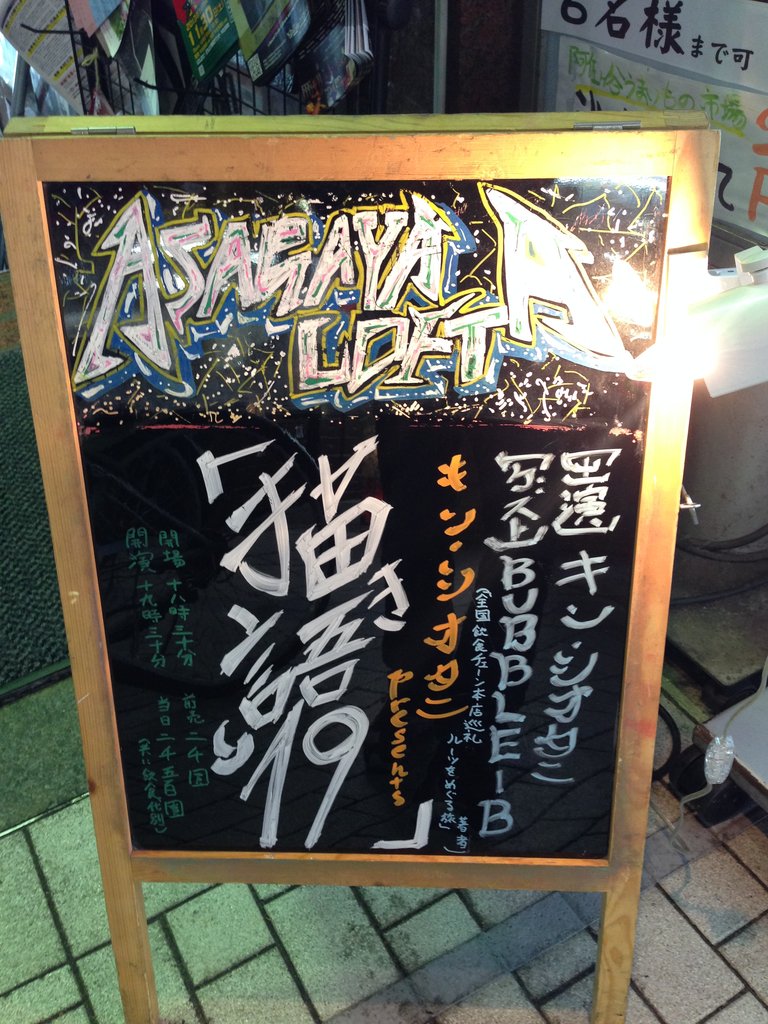 6名様まで可
ASAGAYA
LOFT A
【出演】キン・シオタニ
【ゲスト】BUBBLE-B
(全国飲食チェーン本店巡礼
ルーツをめぐる旅」著者)
キン・シオタニ
presents
「猫き
と語り19」
開場 十八時三十分
開演 十九時三十分
前売 二千円
当日 二千五百円
(共に飲食代別)